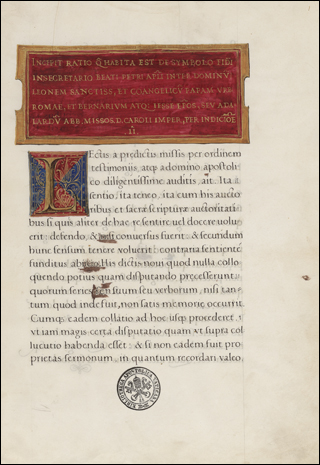 INCIPIT RATIO Q̄ HABITA EST DE SYMBOLO FIDI
IN SECRETARIO BEATI PETRI APLI INTER DOMINV̄
LEONEM SANCTISS, ET COANGELICV̄ PAPAM VRB
ROMAE, ET BERNARIVM ATQ; IESSE EPOS, SEV ADA
LARDV̄ ABB, MISSOS, D. CAROLI IMPER, PER INDICTIŌE
II.
LEctis a prędictis missis per ordinem
testimoniis, atq; a domino apostoli
co diligentissime auditis ait. Ita
sentio, ita teneo, ita cum his aucto
ribus et sacrę scripturę auctoritati
bus si quis aliter de hac re sentire uel docere uolu
erit defendo, & nisi conuersus fuerit & secundum
hunc sensum tenere uoluerit contraria sentientē
funditus His dictis non quod nulla collo
quendo potius quam disputando precesserunt
quorum series & sensuum seu uerborum, nisi tan
tum quod inde fuit, non satis memorię occurrit
Cumq; eadem collatio ad hoc usq; procederet
vt iam magis certa disputatio quam vt supra col
lucutio habenda esset & si non eadem fuit pro
prietas sermonum, in quantum recordari valeo
BIBLIOTHECA APOSTOLICA VATICANA